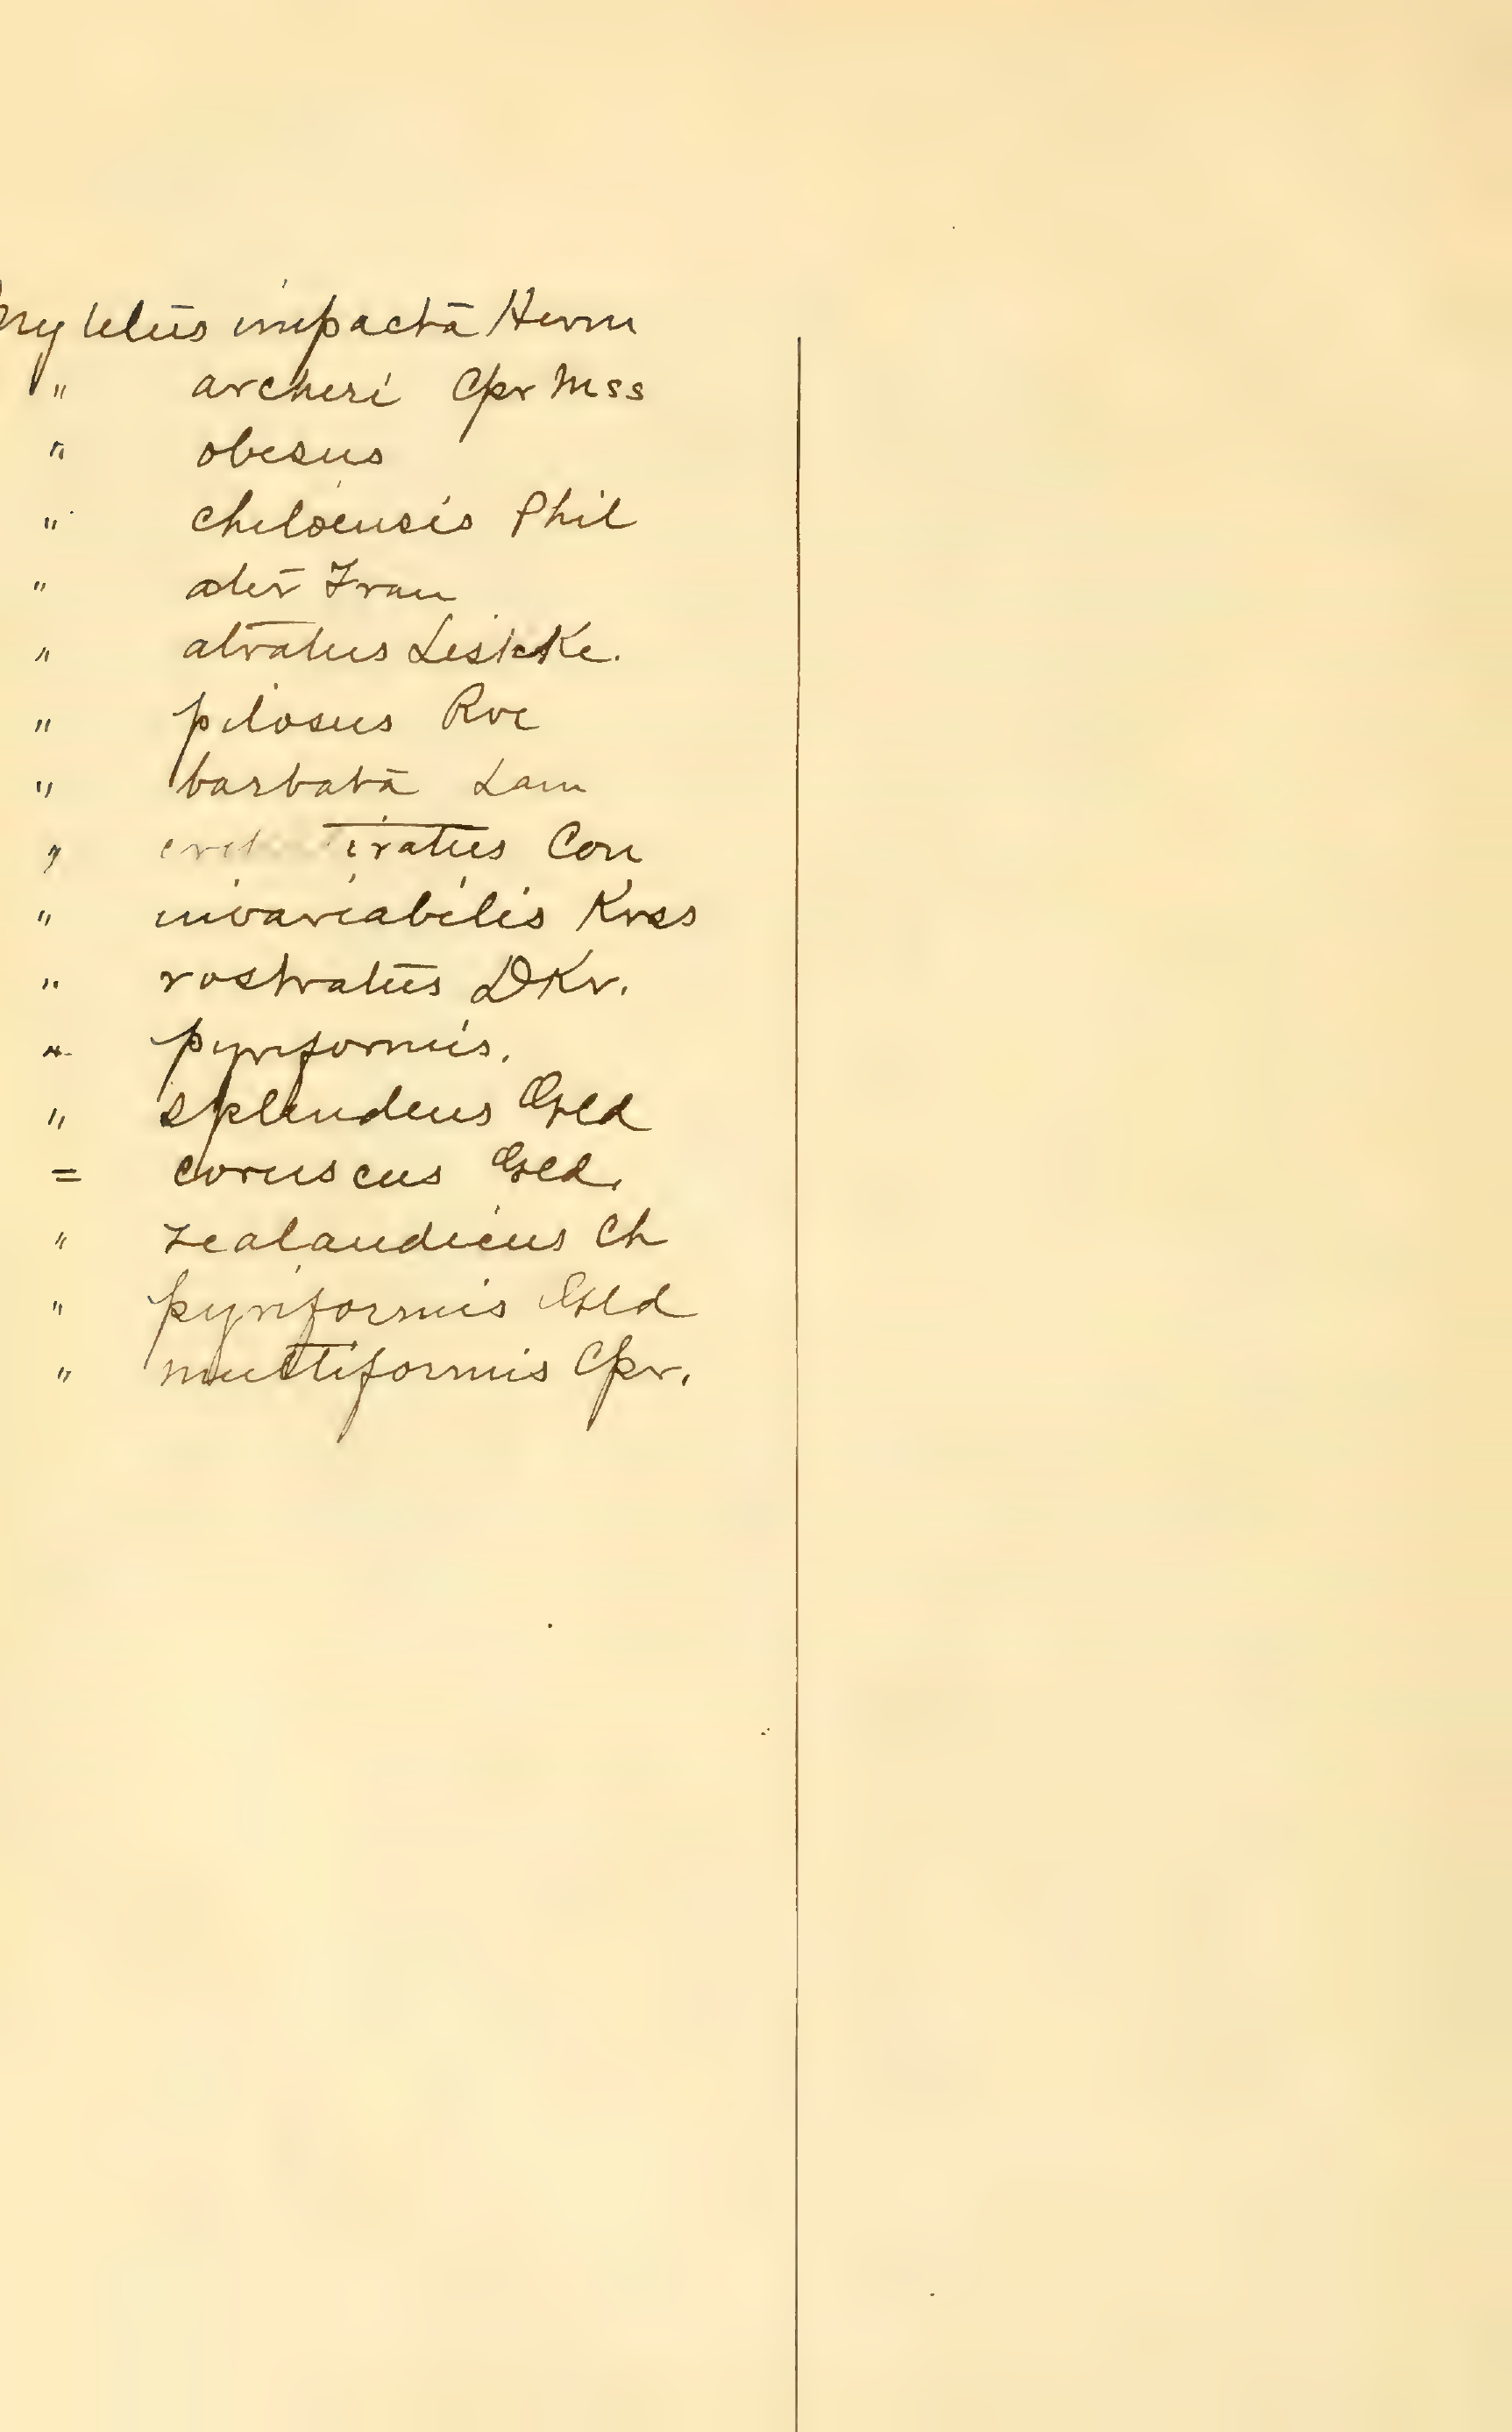 Mytilus impacta Herm
" archeri Cpr Mss
" obesus
" chiloensis Phil
" ater Frau
" atratus Lischke.
" pilosus Rve
" barbata Lam
" iratus Con
" invariabilis Krss
" rostratus DKr.
" pyriformis.
" splendens Gld
= coruscus Gld.
" zealandicus Ch
" pyriformis Gld
" multiformis Cpr.